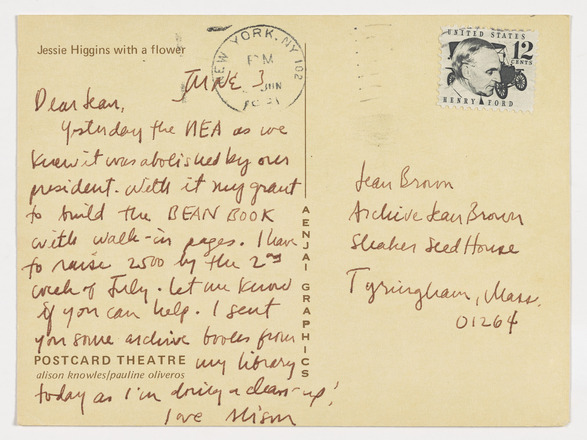 Jessie Higgins with a flower
NEW YORK, NY 102
PM
JUN
UNITED STATES
12
CENTS
HENRY FORD
JUNE 3
Dear Jean,
Yesterday the NEA as we
knew it was abolished by our
president. With it my grant
to build the BEAN BOOK
with walk-in pages. I have
to raise 2500 by the 2nd
week of July. Let me know
if you can help. I sent
you some archive books from
my library
today as I'm doing a clean-up!
love Alison
POSTCARD THEATRE
alison knowles/pauline oliveros
AENJAI GRAPHICS
Jean Brown
Archive Jean Brown
Shaker Seed House
Tyringham, Mass.
01264